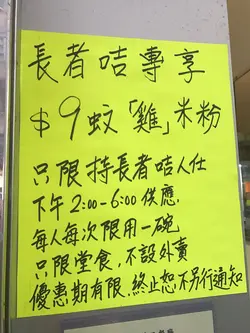 長者咭專享
$9蚊「雞」米粉
只限持長者咭人仕
下午2:00-6:00供應.
每人每次限用一碗
只限堂食,不設外賣
優惠期有限,終止恕不另行通知